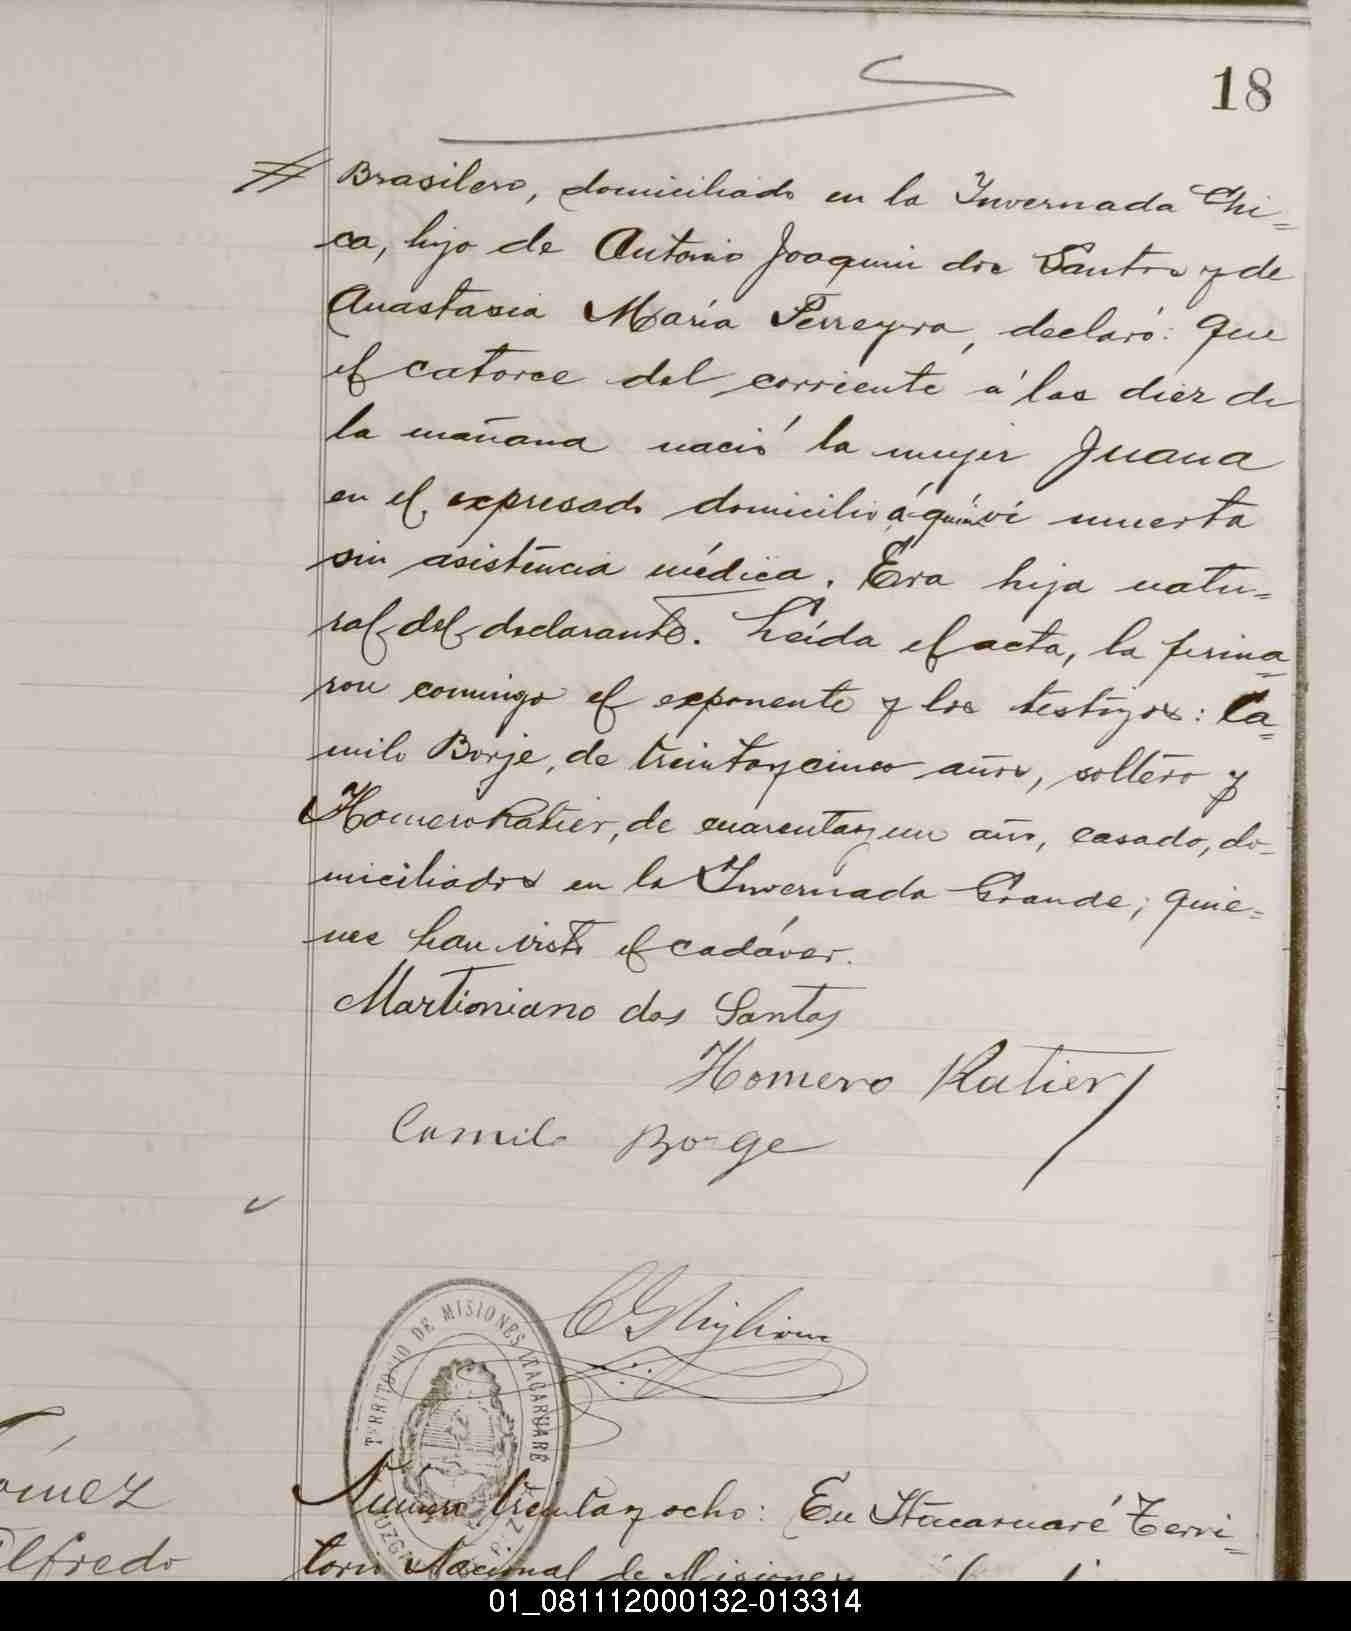 18
Brasilero, domiciliado en la Invernada Chi=
ca, hijo de Antonio Joaquin dos Santos y de
Anastasia María Ferreyra, declaró: Que
el catorce del corriente á las diez de
la mañana nació la mujer Juana
en el expresado domicilio á quien ví muerta
sin asistencia médica. Era hija natu=
ral del declarante. Leída el acta, la firma=
ron conmigo el exponente y los testigos: Ca=
milo Borje, de treinta y cinco años, soltero y
Homero Ratier, de cuarenta y un año, casado, do=
miciliados en la Invernada Grande; quie=
nes han visto el cadáver.
Martiniano dos Santos
Homero Ratier
Camilo Borge
TERRITORIO DE MISIONES ITACARUARÉ
Número treinta y ocho: En Itacaruaré Terri=
torio Nacional de Misiones
ómez
Alfredo
01_081112000132-013314